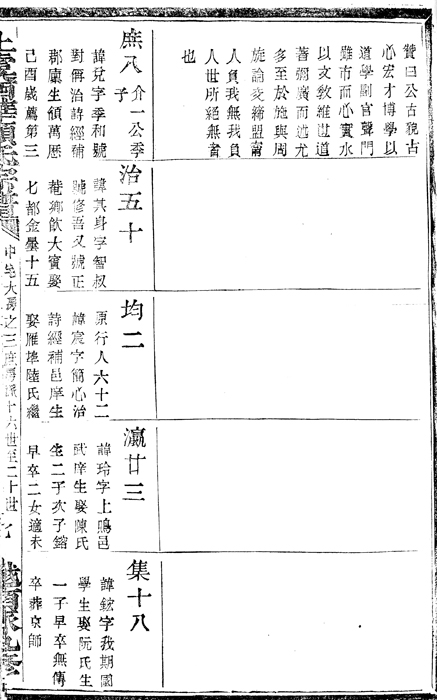 贊曰公古貌古
心宏才博學以
道學副官聲門
雖市而心實水
以文敎維世道
著宏廣而造尤
多至於施與周
旋論交締盟甯
人負我無我負
人世所絕無者
也
庶八
介一公季子
諱兌字季和號
對僻治詩經補
郡庠生領萬歷
己酉歲薦第三
治五十
諱其身字智叔
號修吾又號正
菴鄉飲大賓娶
七都金曇十五
均二
原行人六十二
諱宸字簡心治
詩經補邑庠生
娶雁埠陸氏繼
瀛廿三
諱玲字上鳴邑
武庠生娶陳氏
生二子次子鎔
早卒二女適未
集十八
諱鉉字我期國
學生娶阮氏生
一子早卒無傳
卒葬京師
中宅大房之三庶房派十六世至二十世